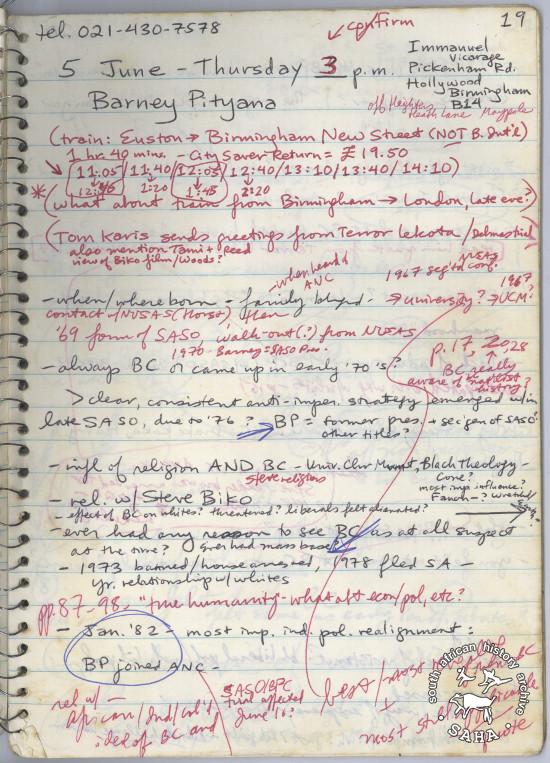 19
tel. 021-430-7578
confirm
5 June - Thursday 3 p.m.
Barney Pityana
Immanuel
Vicarage
Pickenham Rd.
Hollywood
Birmingham
B14
off Highters Heath Lane Maypole
(train: Euston → Birmingham New Street (NOT B. Int'l)
1 hr. 40 mins. - City Saver Return = £19.50
11:05/11:40/12:05/12:40/13:10/13:40/14:10)
1:20 1:45 2:20
* (what about train from Birmingham → London, late eve?)
(Tom Karis sends greetings from Terror Lekota/
also mention Tami + Reed
view of Biko film/Woods?
when heard of
ANC
1967
- when/where born - family - → university? → UCM?
contact of NUSAS (Horst) then
'69 form of SASO walk-out(?) from NUSAS
1970 - Barney = SASO Pres.
p. 17, 2028
- always BC or came up in early '70's?
BC really
aware of history?
> clear, consistent anti-imper. strategy emerged w/in
late SASO, due to '76? BP = former pres. + sec gen of SASO
other titles?
- infl of religion AND BC - Univ. Chr Mvmt, Black Theology -
Steve religious
Cone?
most imp. influence?
Fanon-?
- rel. w/ Steve Biko
- effect of BC on whites? threatened? liberals felt alienated?
- ever had any reason to see BC as at all suspect
at the time? Ever had mass base?
- 1973 banned/house arrested, 1978 fled SA -
Yr. relationship w/ whites
pp. 87-98, "true humanity" - what abt econ/pol, etc?
- Jan. '82 - most imp. ind. pol. realignment:
BP joined ANC -
rel. w/ -
African/Ind/Col'd
idea of BC and
SASO/BPC
trial affected
June 16?
best/most
+
most
quote
south african history archive
SAHA